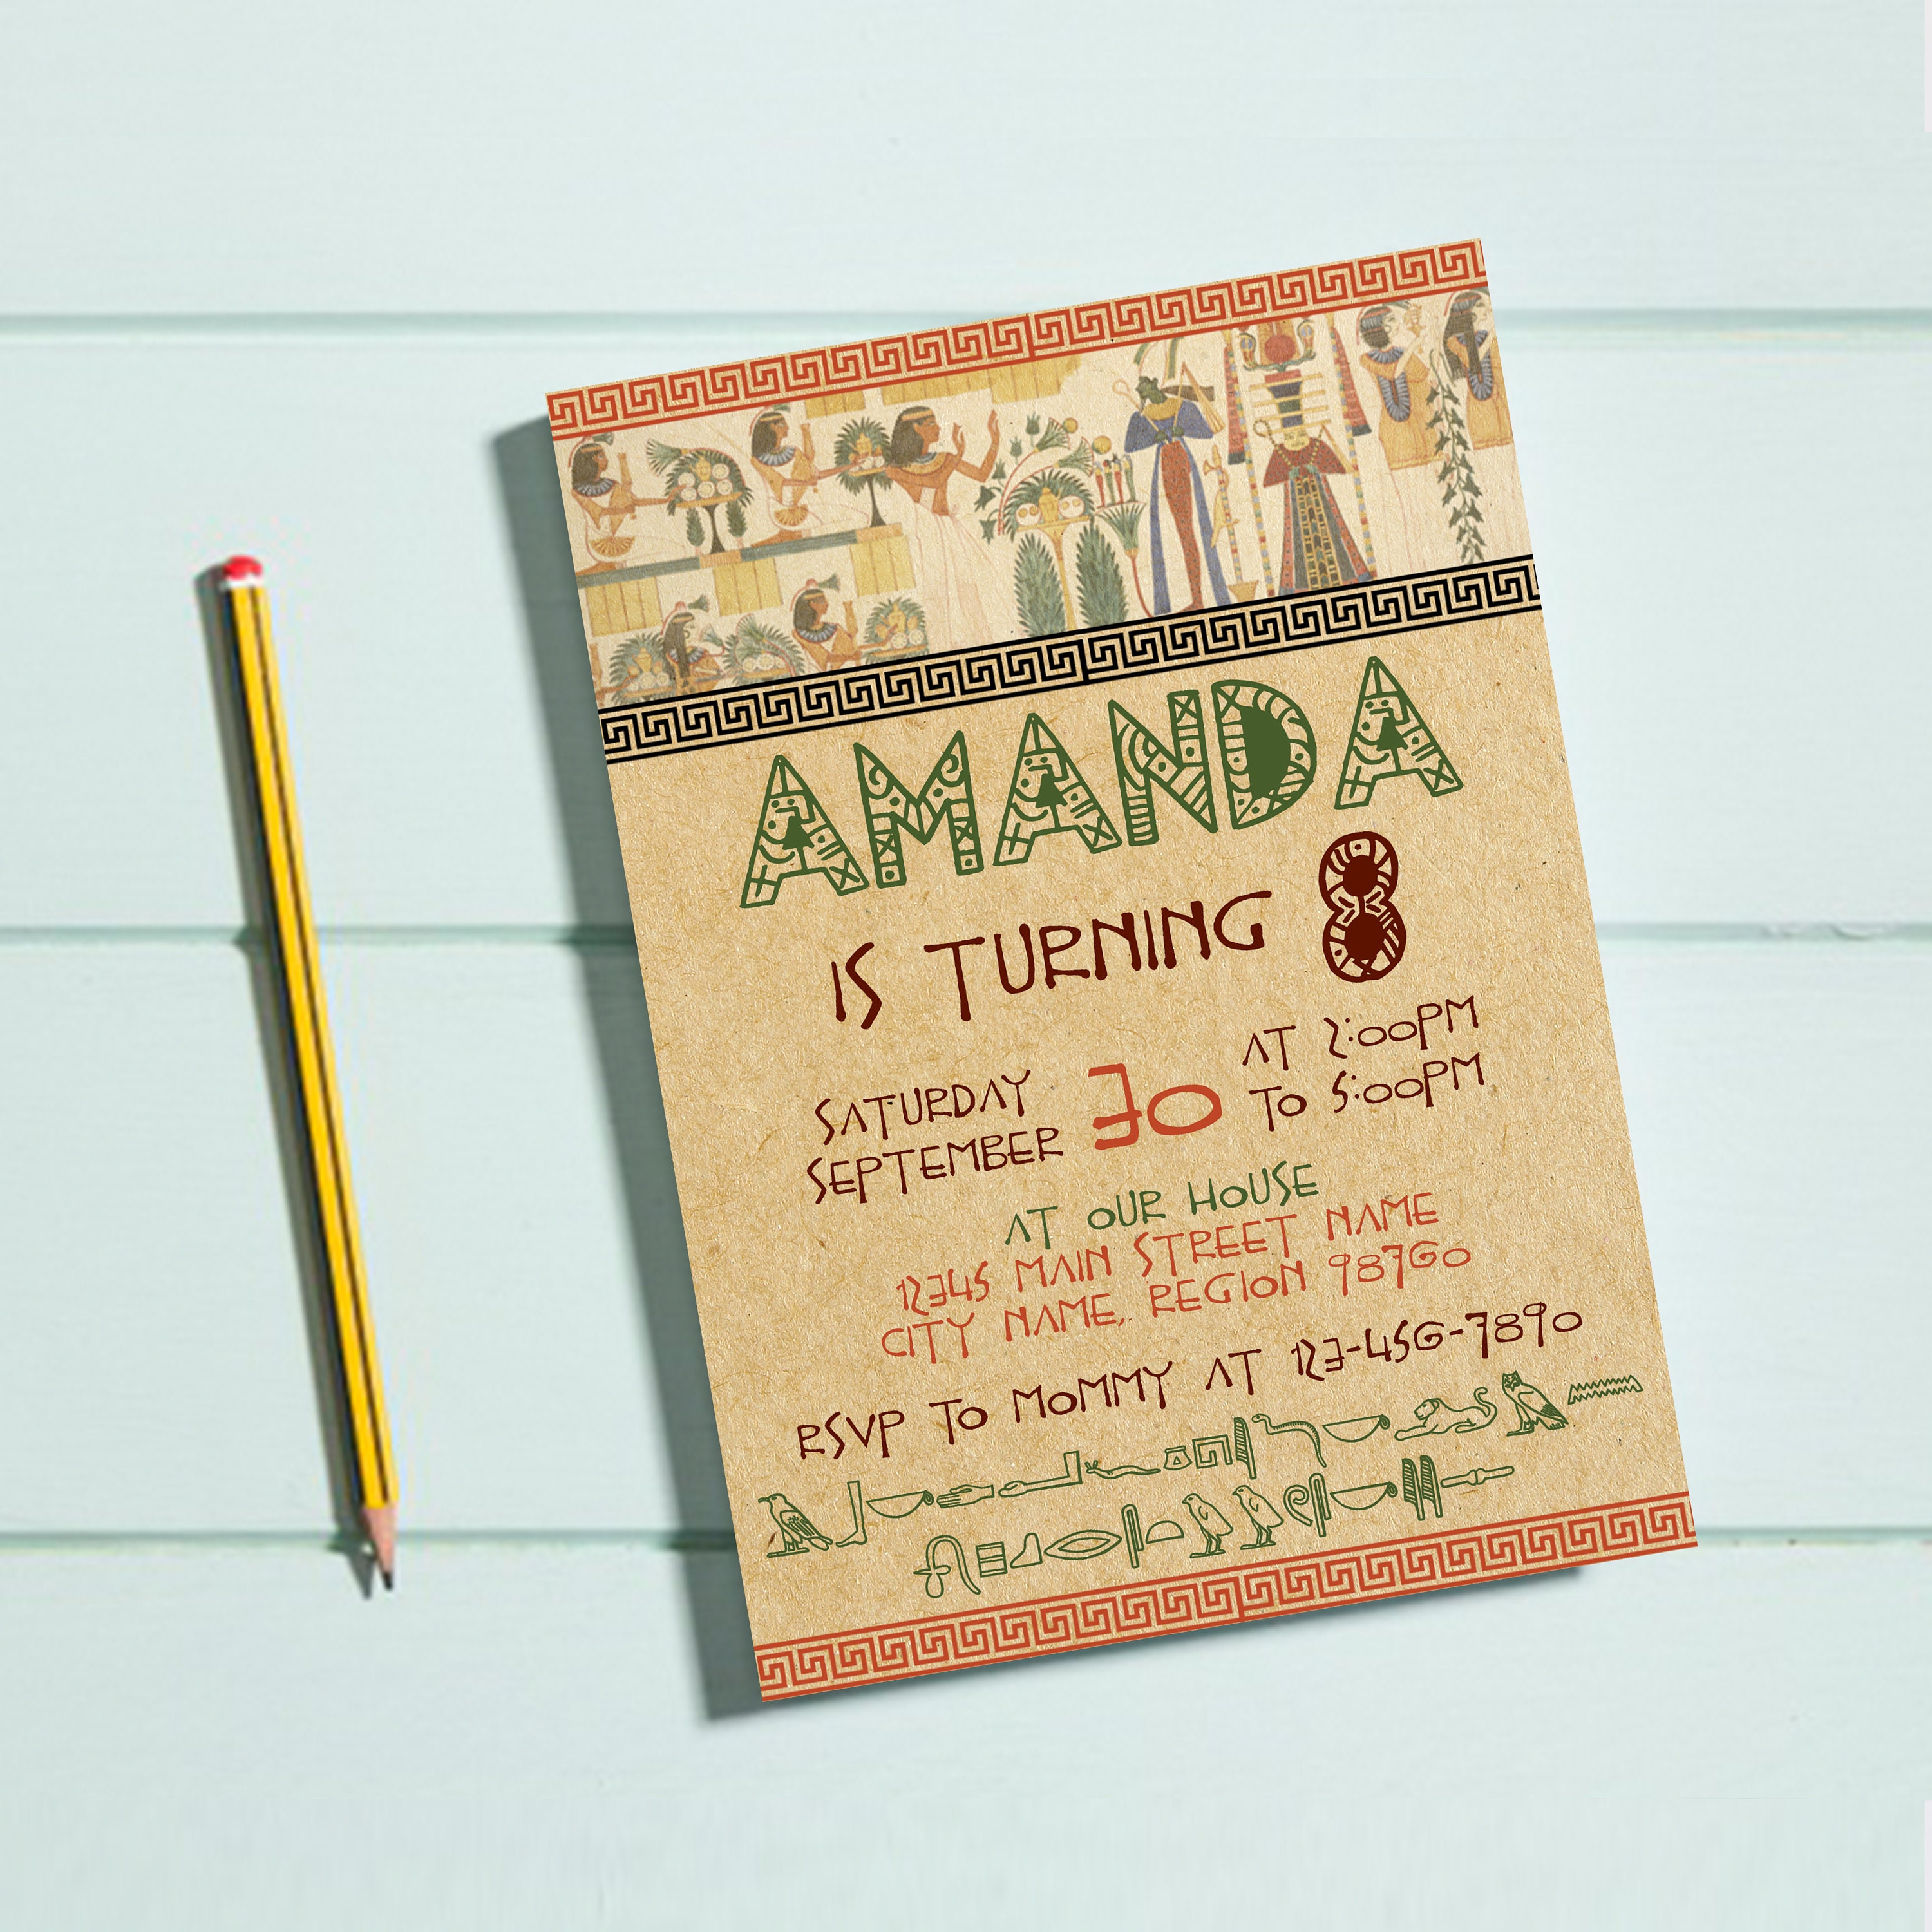 AMANDA
IS TURNING 8
SATURDAY
SEPTEMBER
30
AT 2:00PM
TO 5:00PM
AT OUR HOUSE
12345 MAIN STREET NAME
CITY NAME, REGION 98760
RSVP TO MOMMY AT 123-456-7890